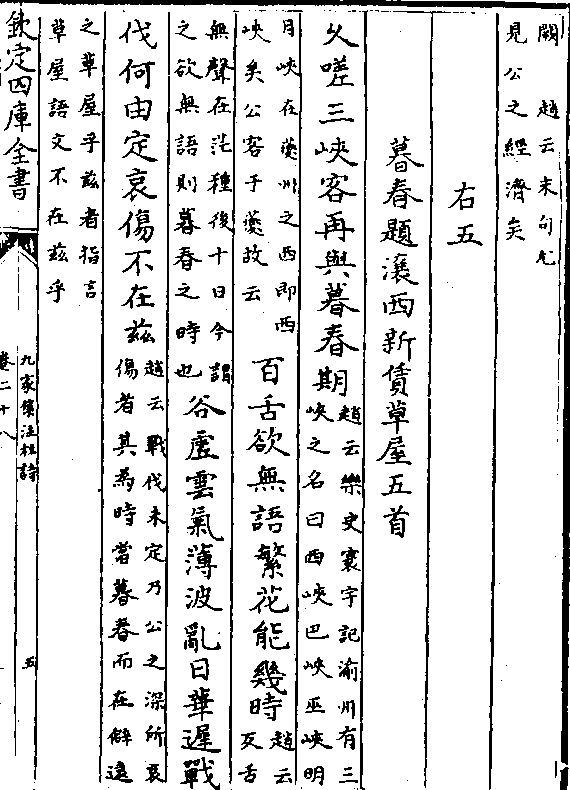 闕趙云末句尤
見公之經濟矣
右五
暮春題瀼西新賃草屋五首
久嗟三峽客再與暮春期趙云樂史寰宇記渝州有三
峽之名曰西峽巴峽巫峽明
月峽在夔州之西即西
峽矣公客于夔故云
百舌欲無語繁花能幾時趙云
反舌
無聲在芒種後十日今謂
之欲無語則暮春之時也
谷虛雲氣薄波亂日華遲戰
伐何由定哀傷不在茲趙云戰伐未定乃公之深所哀
傷者其為時當暮春而在僻遠
之草屋乎茲者指言
草屋語文不在茲乎
欽定四庫全書
九家集注杜詩
卷二十八
五